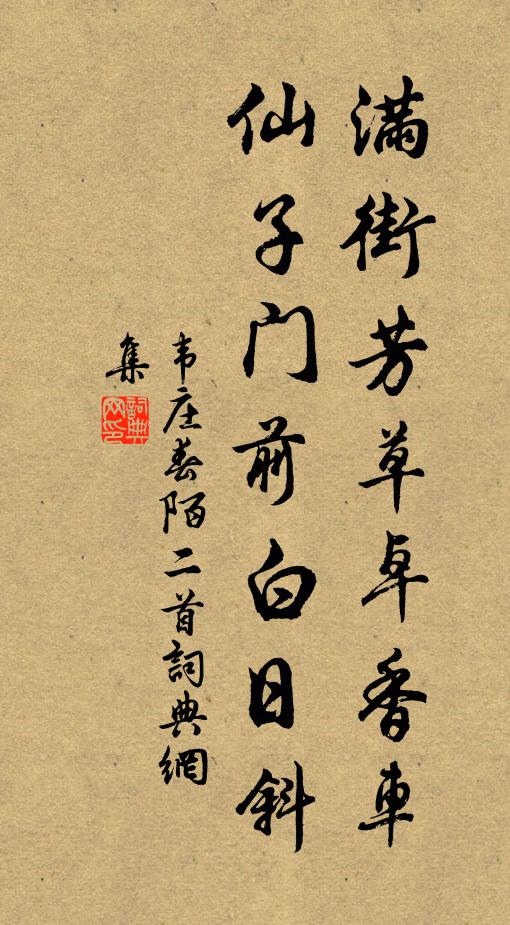 滿街芳草卓香車
仙子门前白日斜
韦庄春陌二首詞典網
集
詞典网印